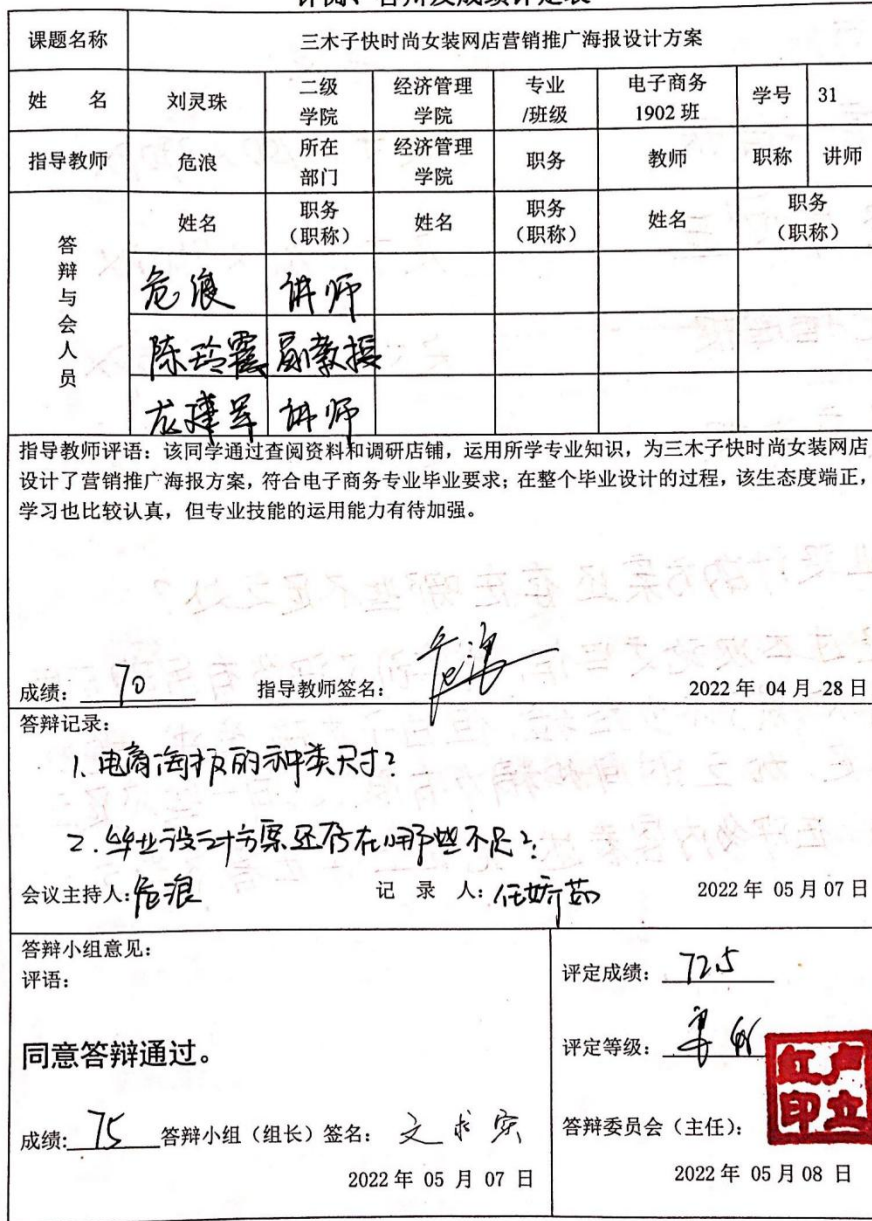 评阅、答辩及成绩评定表
课题名称 三木子快时尚女装网店营销推广海报设计方案
姓 名 刘灵珠 二级学院 经济管理学院 专业/班级 电子商务1902班 学号 31
指导教师 危浪 所在部门 经济管理学院 职务 教师 职称 讲师
答辩与会人员 姓名 职务(职称) 姓名 职务(职称) 姓名 职务(职称)
危浪 讲师
陈玲霞 副教授
龙建军 讲师
指导教师评语：该同学通过查阅资料和调研店铺，运用所学专业知识，为三木子快时尚女装网店
设计了营销推广海报方案，符合电子商务专业毕业要求；在整个毕业设计的过程，该生态度端正，
学习也比较认真，但专业技能的运用能力有待加强。
成绩： 70 指导教师签名： 危浪 2022 年 04 月 28 日
答辩记录：
1. 电商海报的种类尺寸？
2. 毕业设计方案还存在哪些不足？
会议主持人：危浪 记 录 人：任娇茹 2022 年 05 月 07 日
答辩小组意见：
评语：
同意答辩通过。
成绩: 75 答辩小组（组长）签名： 文求实
2022 年 05 月 07 日
评定成绩： 72.5
评定等级：
答辩委员会（主任）：
卢立红印
2022 年 05 月 08 日